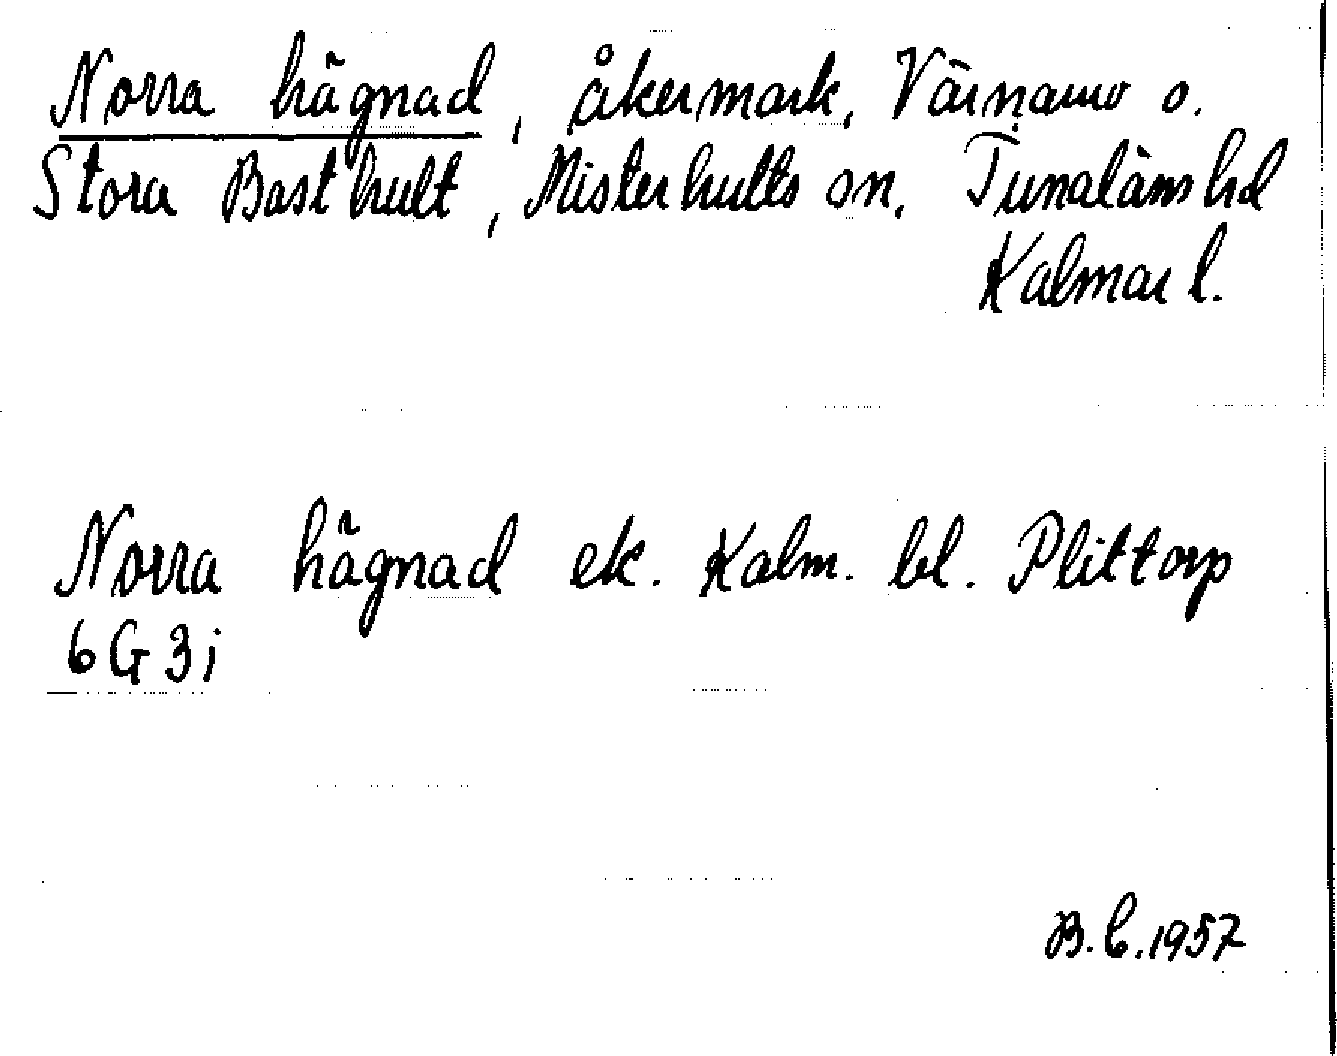 Norra hägnad, åkermark, Värnamo o.
Stora Basthult, Misterhults sn, Tunaläns hd
Kalmar l.
Norra hägnad ek. Kalm. bl. Plittorp
6G3i
B.C.1957